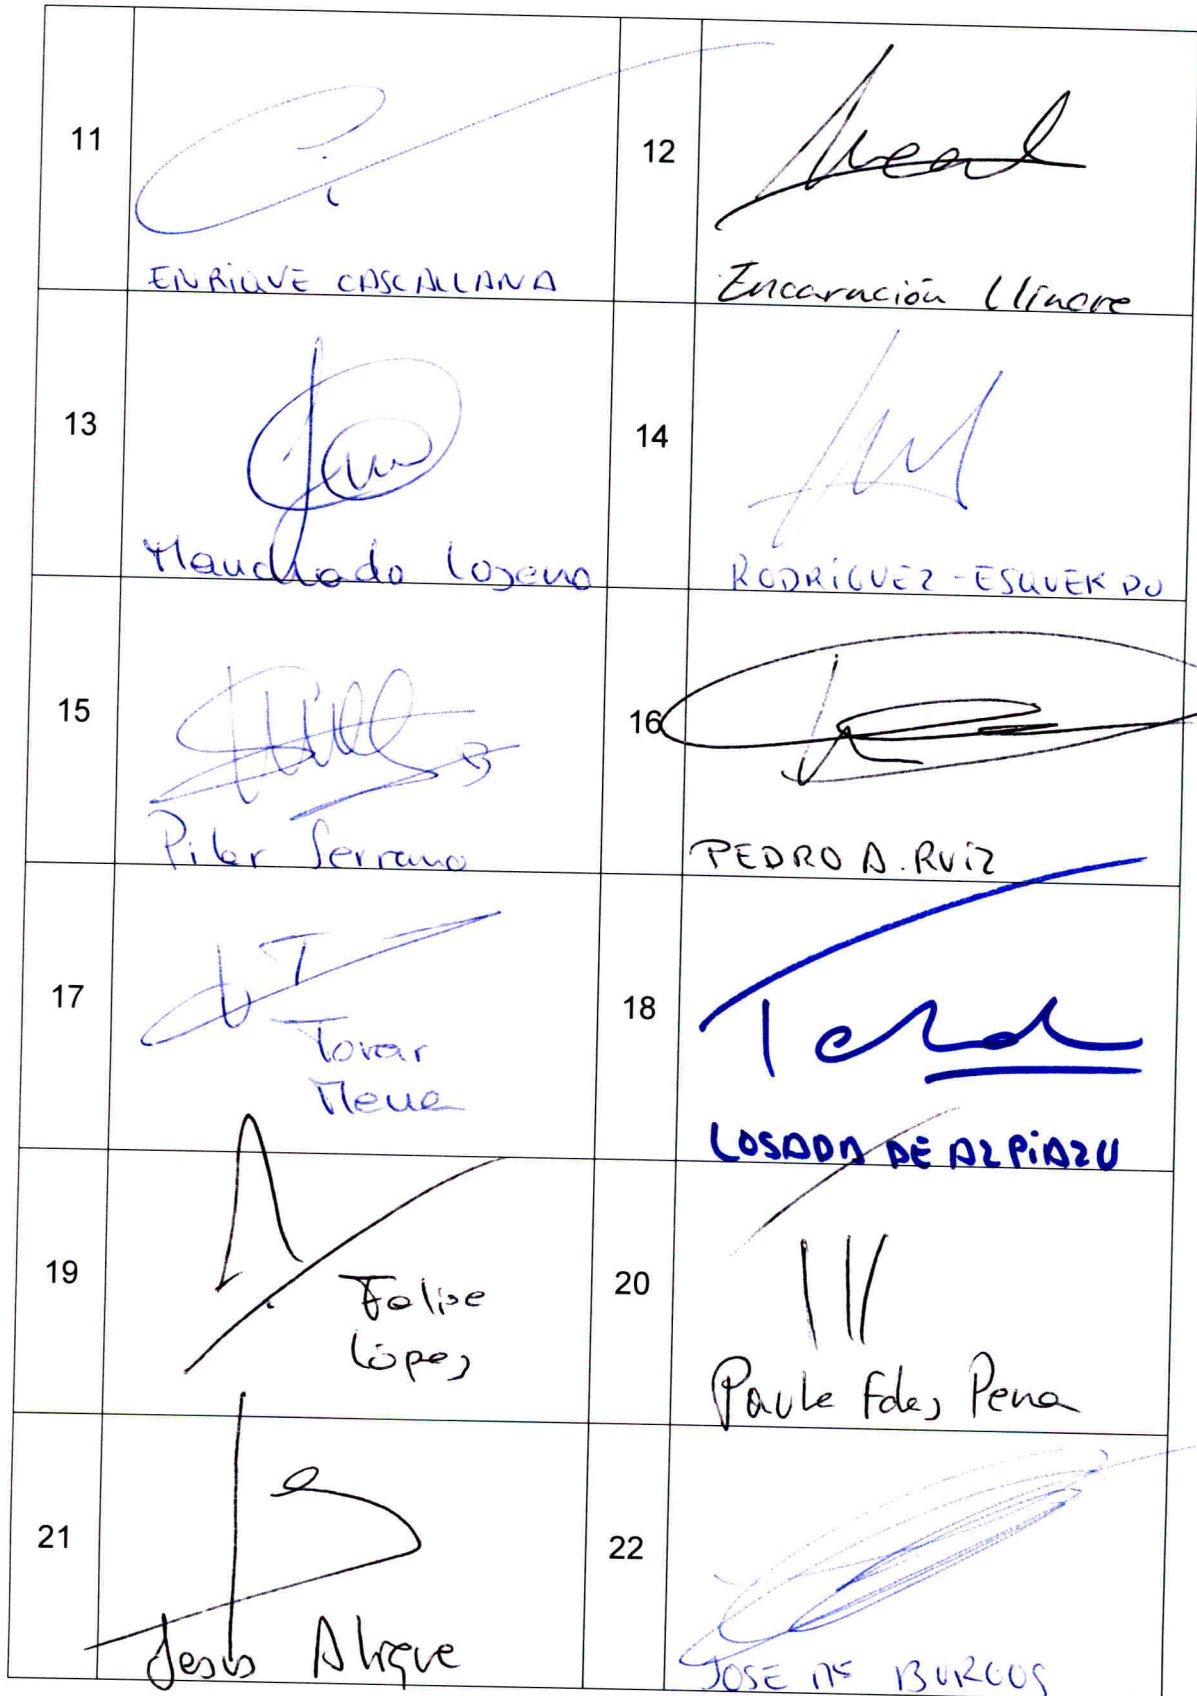 11
ENRIQUE CASCALLANA
12
Encarnación Llinare
13
Manchado Lozano
14
RODRÍGUEZ-ESQUERDO
15
Pilar Serrano
16
PEDRO A. RUIZ
17
Tovar
Mena
18
LOSADA DE AZPIAZU
19
Felipe
López
20
Paula Fdez Pena
21
Jesús Alique
22
JOSE Mª BURGOS